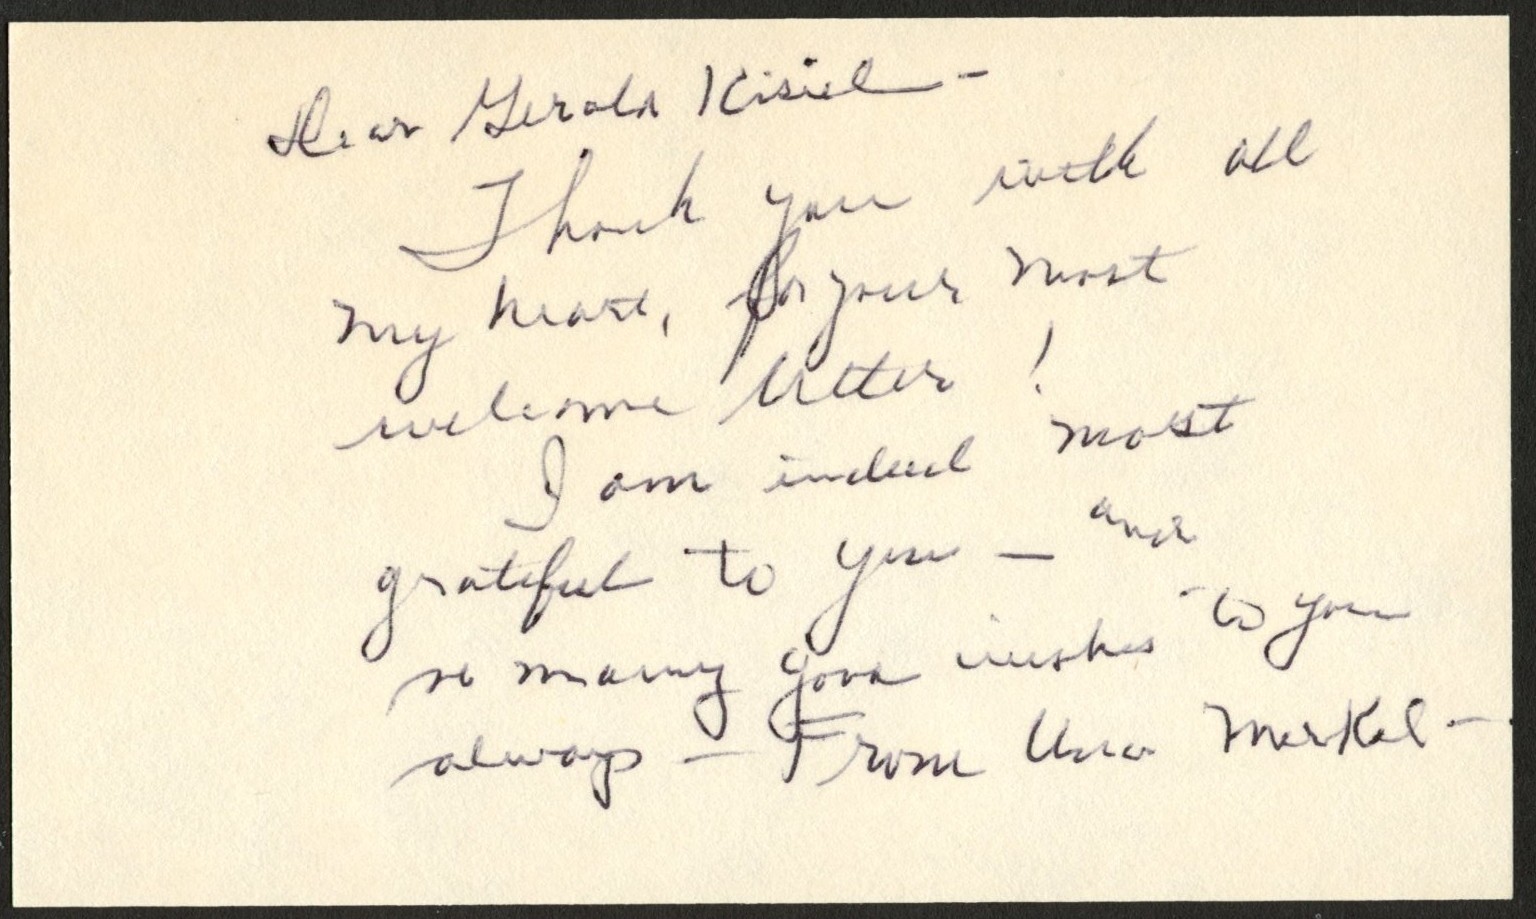 Dear Gerald Kisiel -
Thank you with all
my heart, for your most
welcome letter!
I am indeed most
grateful to you - and
so many good wishes to you
always - From Una Merkel -